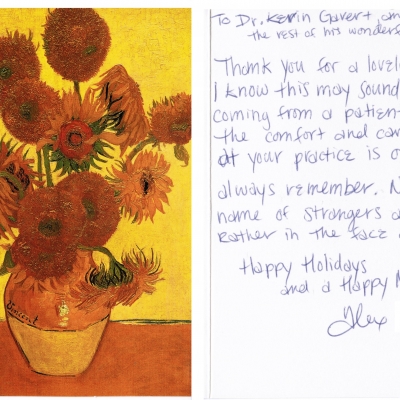 Vincent
To Dr. Kevin Gavert, am
the rest of his wonderf
Thank you for a lovel
I know this may sound
coming from a patient
the comfort and car
at your practice is o
always remember. N
name of strangers a
Rather in the face
Happy Holidays
and a Happy N
Alex